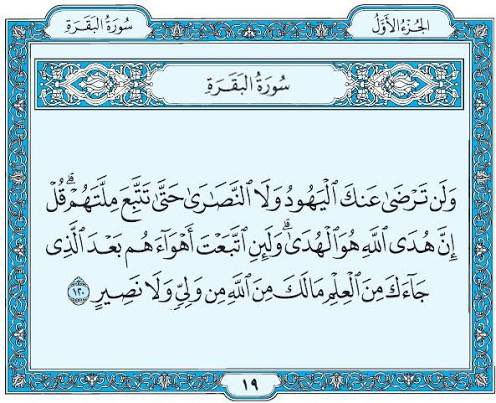 الجُزءُ الأَوَّلُ
سُورَةُ البَقَرَةِ
سُورَةُ البَقَرَةِ
وَلَن تَرْضَىٰ عَنكَ الْيَهُودُ وَلَا النَّصَارَىٰ حَتَّىٰ تَتَّبِعَ مِلَّتَهُمْ ۗ قُلْ
إِنَّ هُدَى اللَّهِ هُوَ الْهُدَىٰ ۗ وَلَئِنِ اتَّبَعْتَ أَهْوَاءَهُم بَعْدَ الَّذِي
جَاءَكَ مِنَ الْعِلْمِ مَا لَكَ مِنَ اللَّهِ مِن وَلِيٍّ وَلَا نَصِيرٍ ١٢٠
١٩